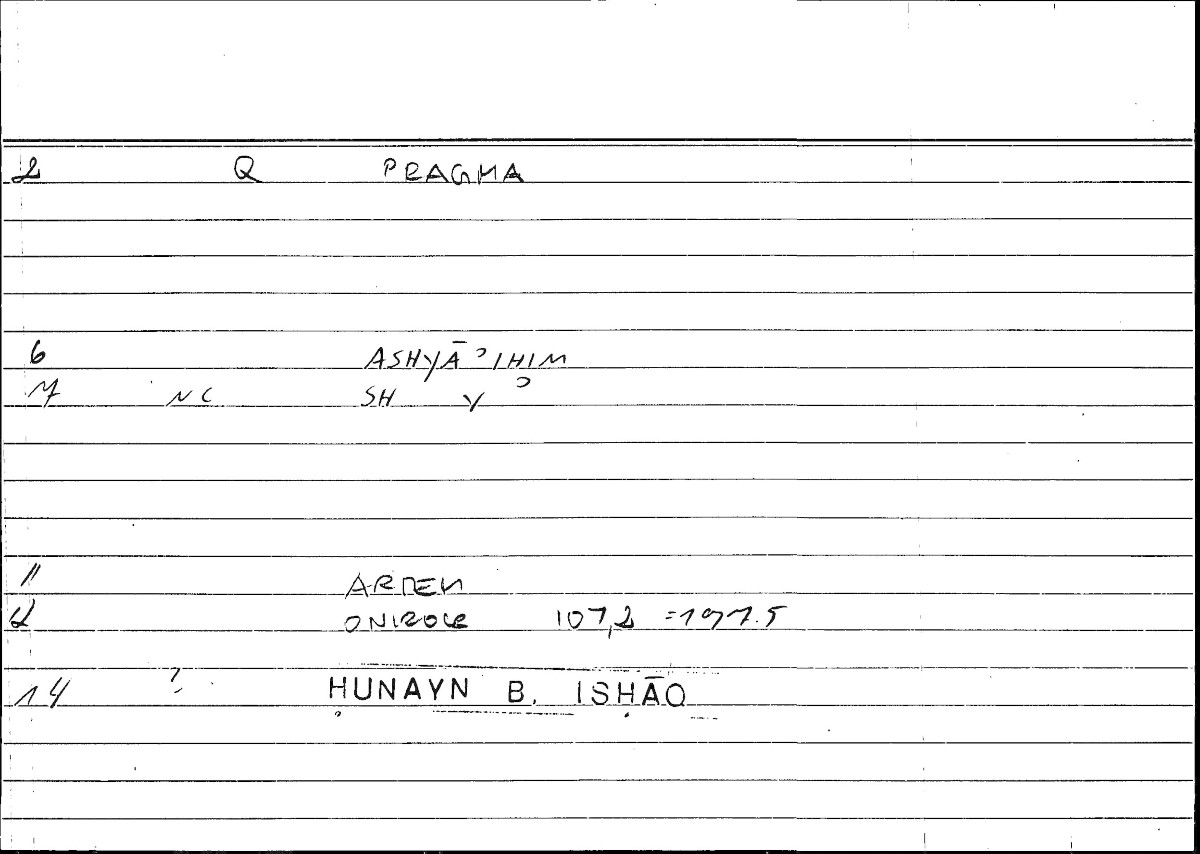 2 Q PRAGMA
6 ASHYĀʾIHIM
7 NC SH Y ʾ
11 ARTEM
12 ONIROCR 107,2 =197.5
14 ? ḤUNAYN B. ISḤĀQ